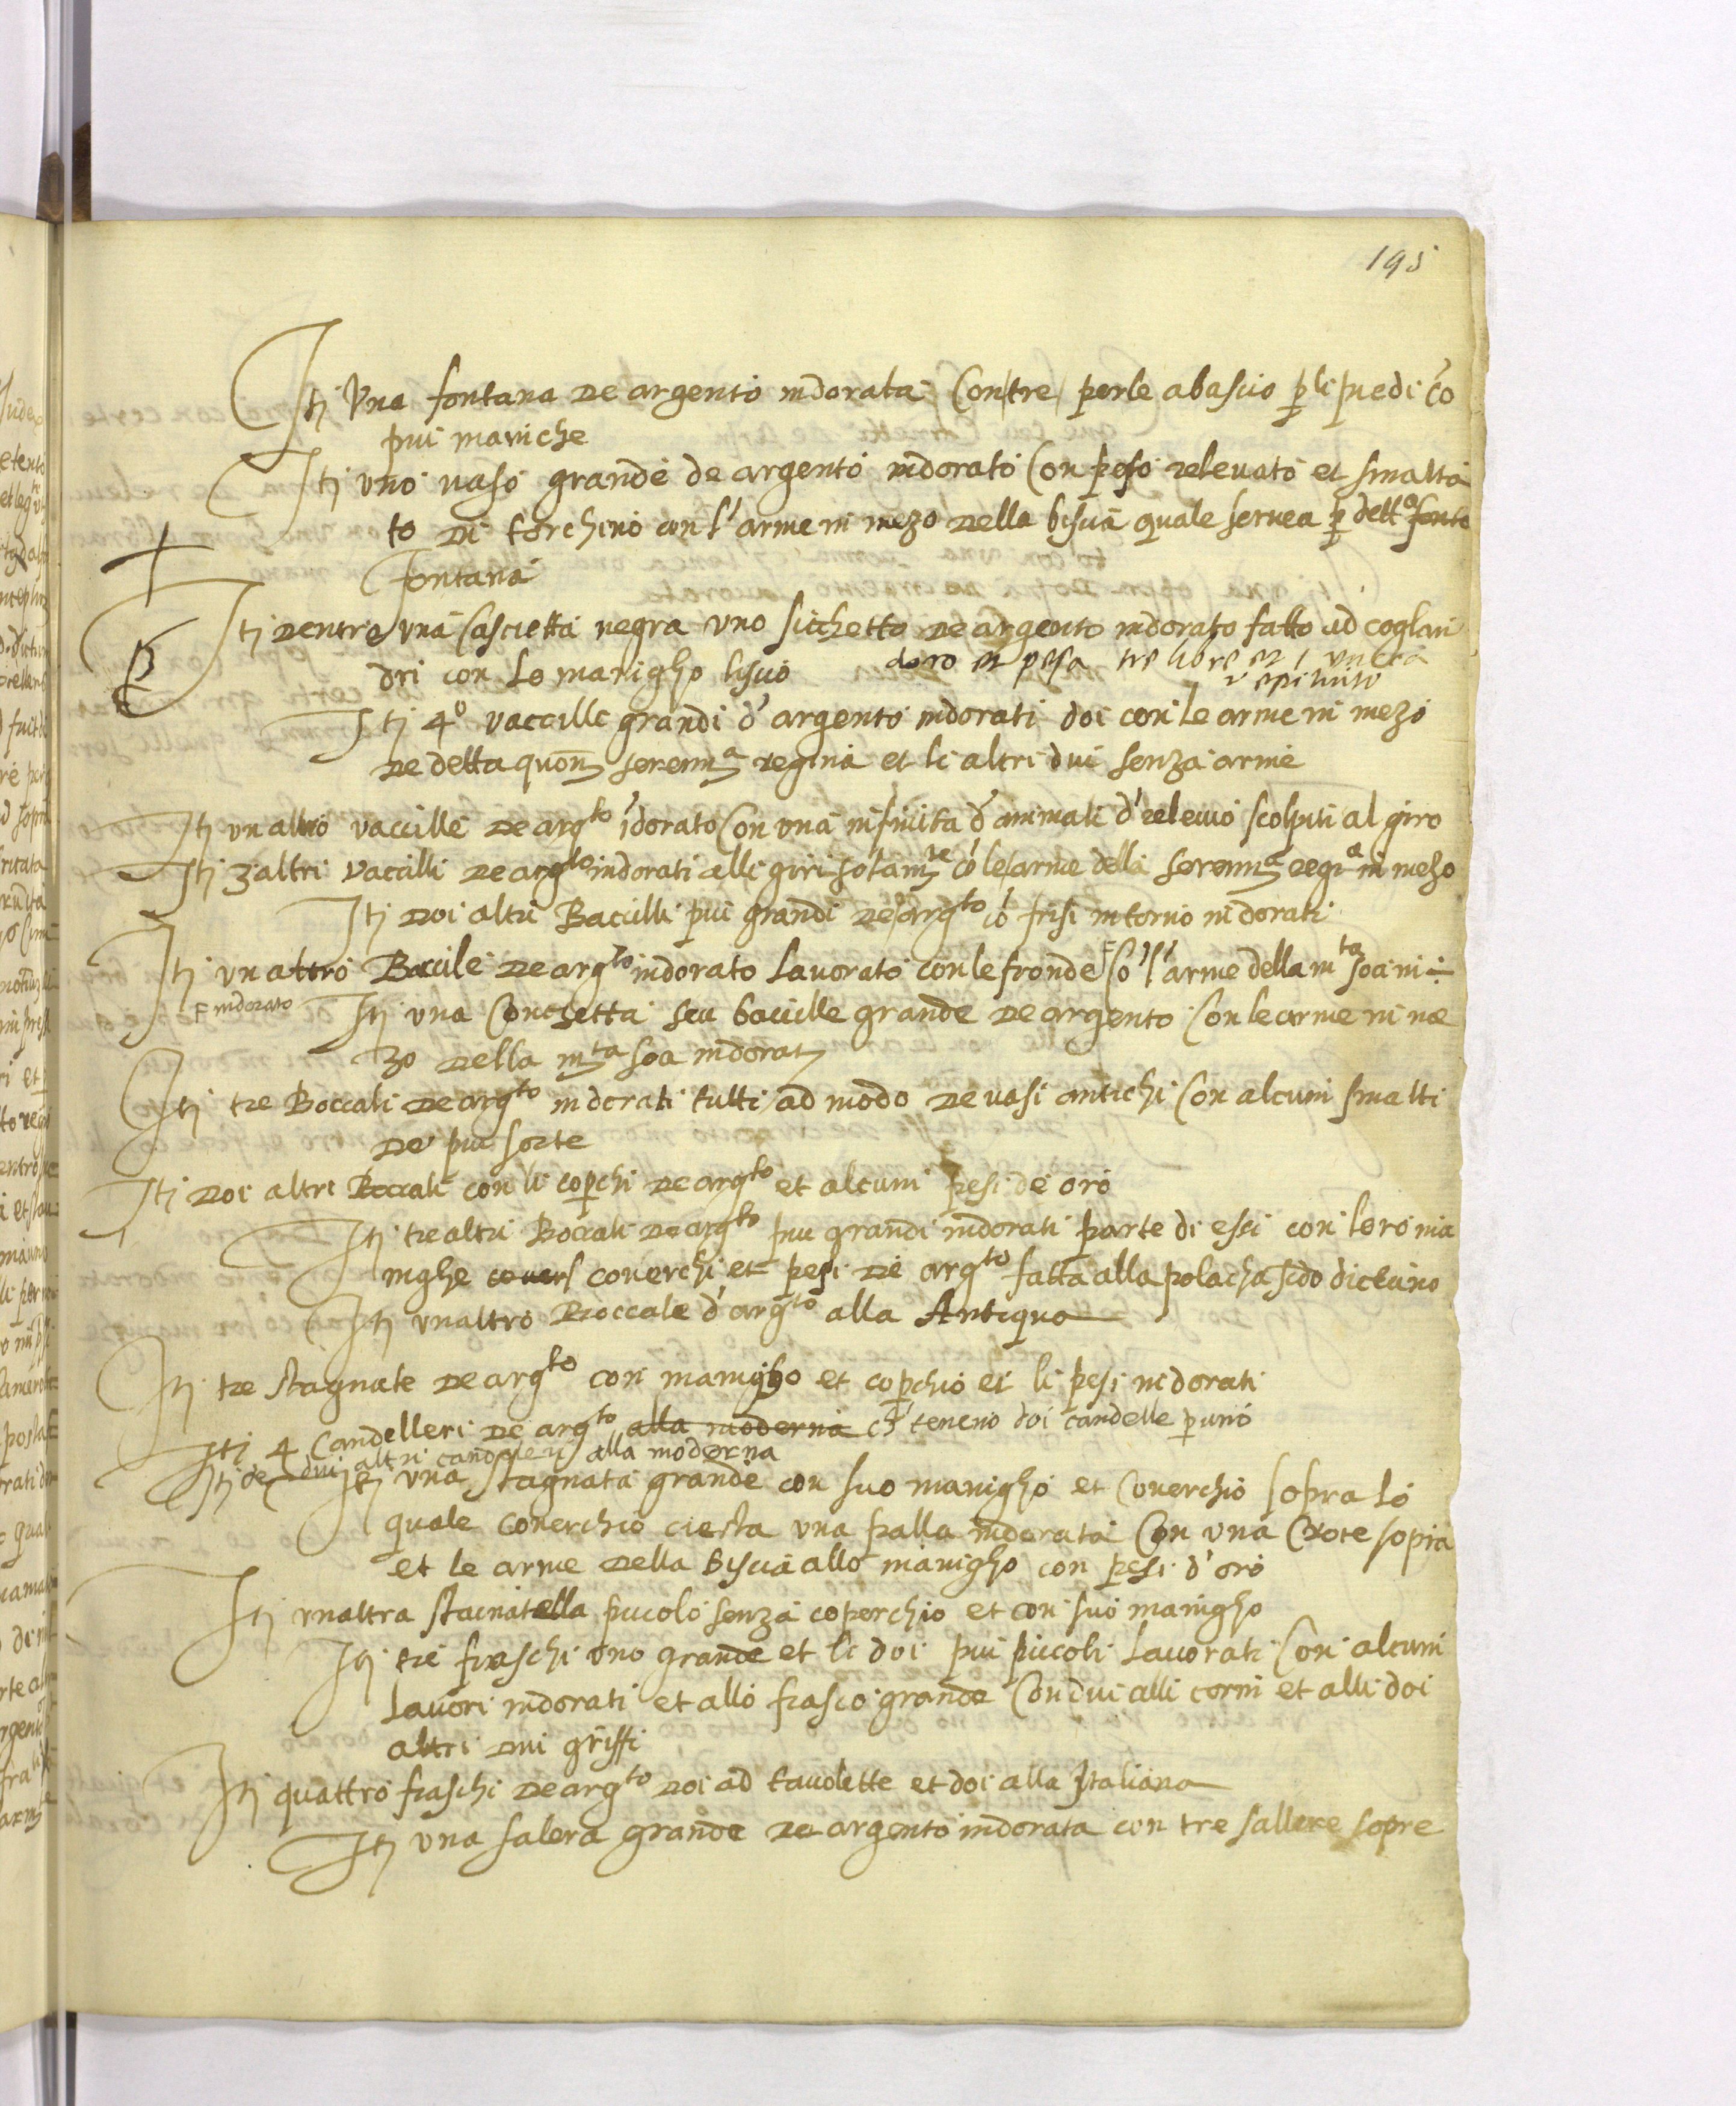 195
Itj Una fontana de argento indorata Con tre perle abascio p li piedi cō
piui maniche
Itj uno vaso grande de argento indorato Con peso relevato et smalta
to di torchino con l'arme in mezo della biscia quale servea p dettᵃ fonta
Fontana
Itj dentro una Cascietta negra uno sicchetto de argento indorato fatto ad coglan
dri con lo manigho liscio doro et pesa tre libre et 1 unccia
Itj 4º vaccille grandi d' argento indorati doi con le arme in mezo
de detta quonᵐ serenmᵃ regina et li altri dui senza arme
Itj un altro vaccille de argᵗᵒ īdorato Con una infinita d' animali d' relevio scolpiti al giro
Itj 3 altri vacilli de argᵗᵒ indorati alli giri solamᵗᵉ cō le arme della serenmᵃ regᵃ in mezo
Itj doi altri Bacilli piu grandi de argᵗᵒ cō frisi intorno indorati
Itj un altro Bacile de argᵗᵒ indorato Lavorato con le fronde F Cō l'arme della mᵗᵃ soa in ÷
F indorato
Itj una Conchetta seu bacille grande de argento Con le arme in me
zo della mᵗᵃ soa indorat
Itj tre Boccali de argᵗᵒ indorati tutti ad modo de vasi antichi Con alcuni smalti
de piu sorte
Itj doi altri Boccali con li copchi de argᵗᵒ et alcuni pesi de oro
Itj tre altri Boccali de argᵗᵒ piu grandi indorati parte di essi con loro ma
nighe covers coverchi et pesi de argᵗᵒ fatta alla polacha scdo diceano
Itj unaltro Boccale d' argᵗᵒ alla Antiqua
Itj tre stagnate de argᵗᵒ con manigho et copchio et li pesi indorati
Itj 4 Candelleri de argᵗᵒ alla moderna ch' teneno doi candelle p uno
Itj de dui altri candeleri alla moderna
Itj una stagnata grande con suo manigho et Coverchio sopra lo
quale coverchio ciesta una palla indorata Con una Croce sopra
et le arme della biscia allo manigho con pesi d' oro
Itj unaltra stainatella piccolo senza coperchio et con suo manigho
Itj tre fiaschi uno grande et li doi piu piccoli Lavorati Con alcuni
Lavori indorati et allo fiasco grande Con dui alli corni et alli doi
altri dui griffi
Itj quattro fiaschi de argᵗᵒ doi ad tavolette et doi alla Italiana
Itj una salera grande de argento indorata con tre sallere sopre